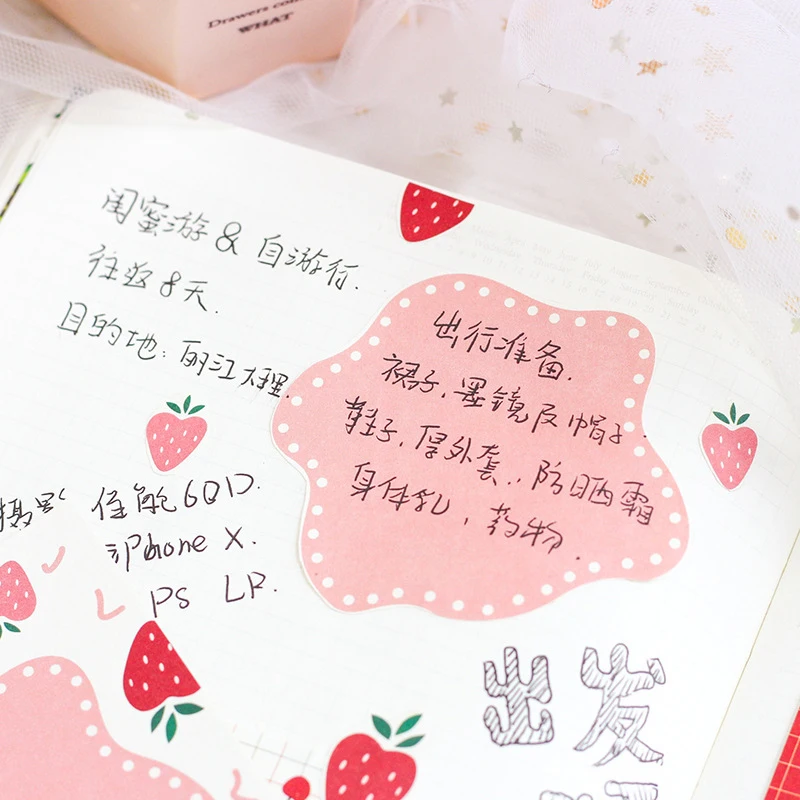 Drawers con
WHAT
闺蜜游 & 自游行.
往返8天.
目的地:丽江大理.
出行准备.
裙子,墨镜及帽子.
鞋子,厚外套,,防晒霜
身体乳,药物.
佳能60D.
iPhone X.
PS LR.
出发